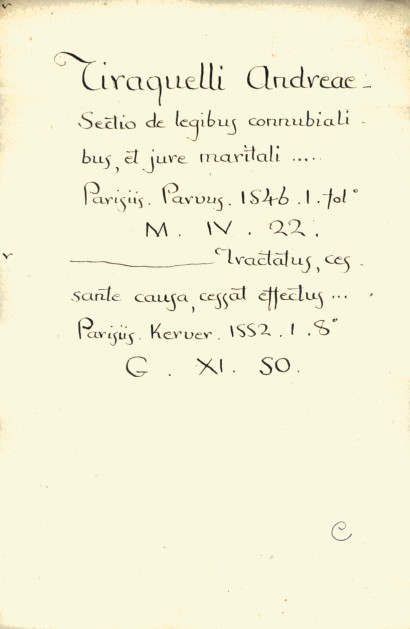 Tiraquelli Andreae -
Sectio de legibus connubiali -
bus, et jure maritali .....
Parisiis. Parvus. 1546. 1. fol°
M. IV. 22.
———— Tractatus, ces -
sante causa, cessat effectus ...
Parisiis. Kerver. 1552. 1. 8°
G. XI. 50.
C